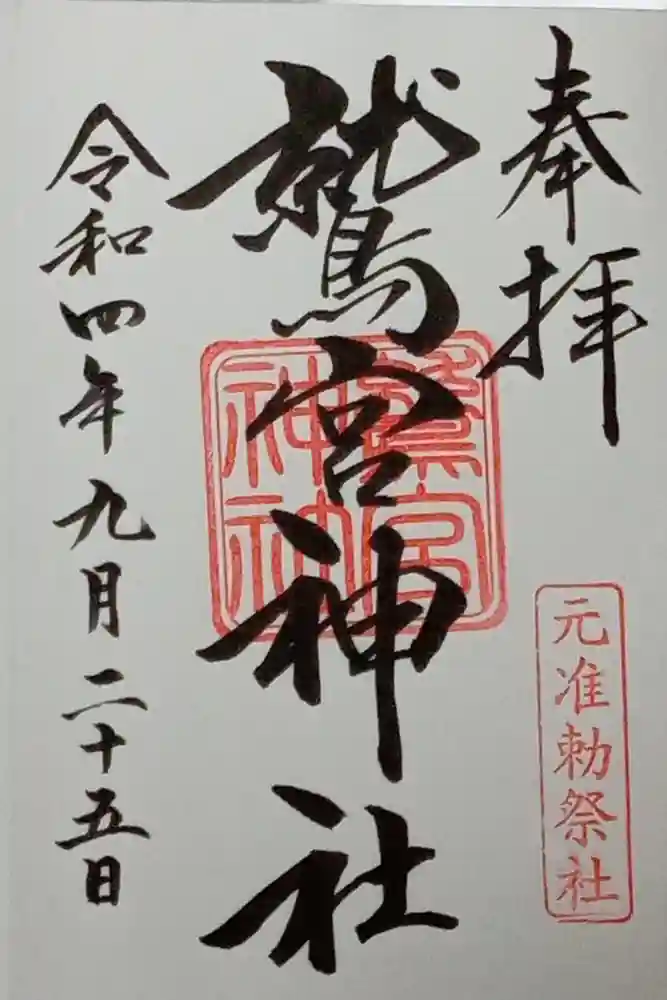 奉拝
元准勅祭社
鷲宮神社
鷲宮
神社
令和四年九月二十五日